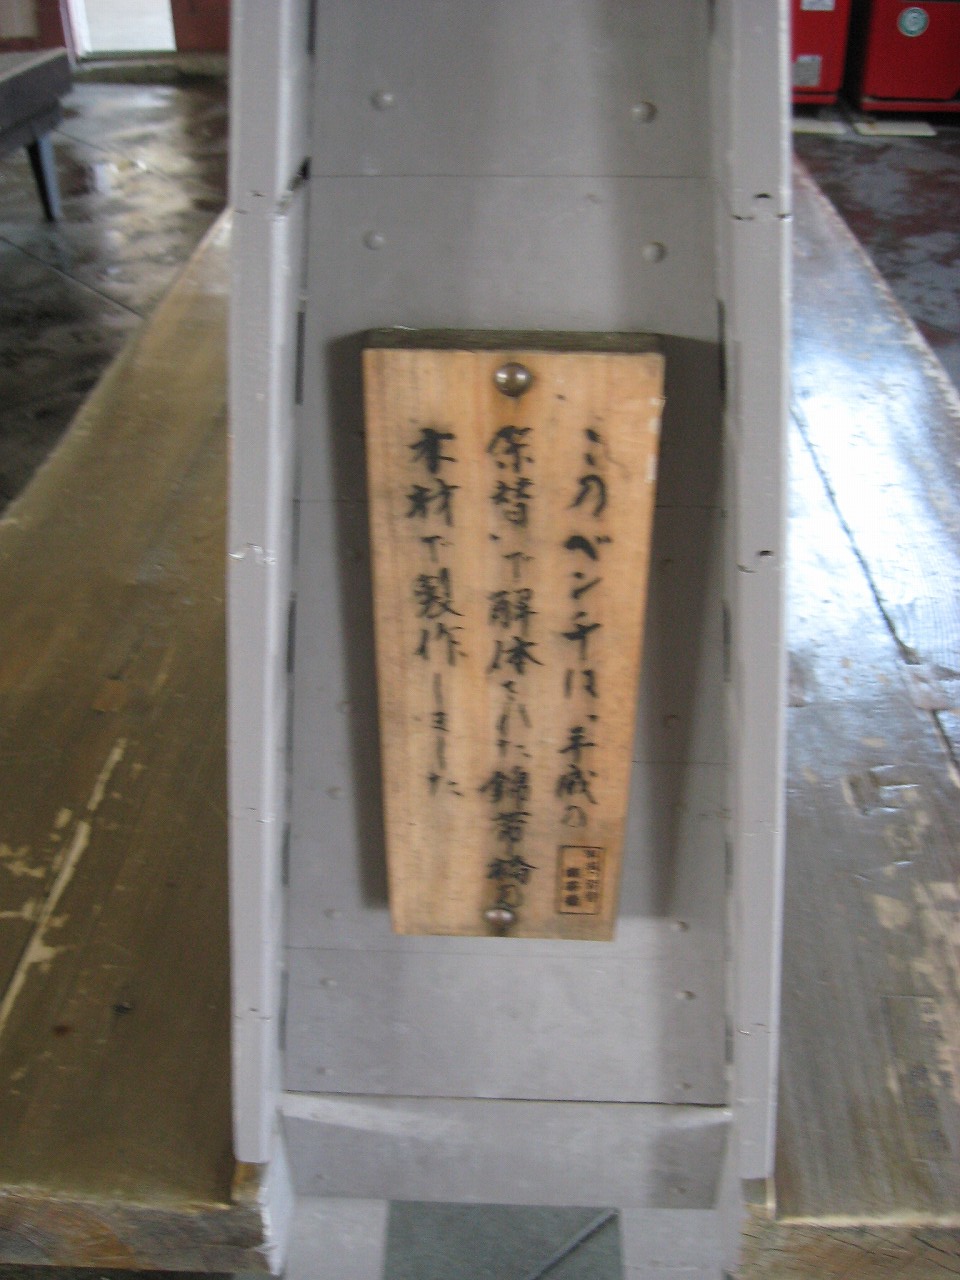 このベンチは、平成の
架替で解体された錦帯橋の
木材で製作しました